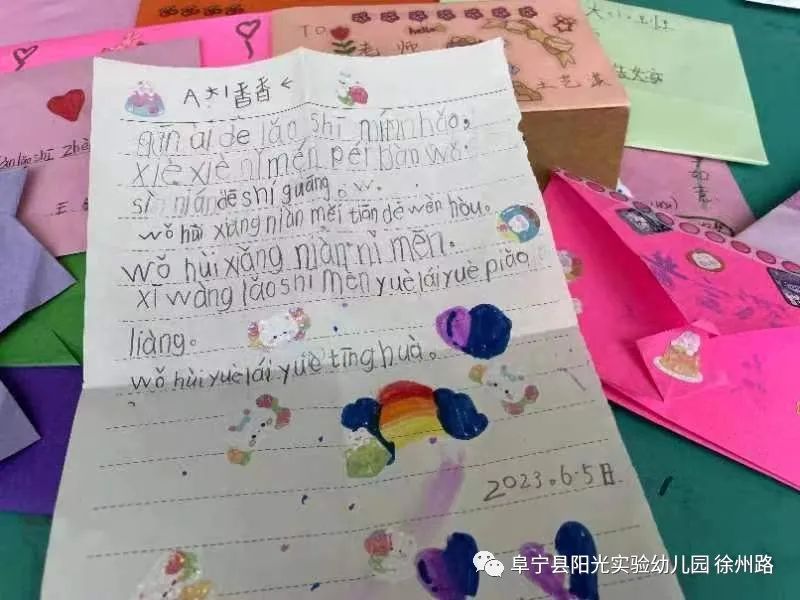 A 刘香香
qīn ài dè lǎo shī nín hǎo,
xiè xiè nǐ mén péi bàn wǒ.
sì nián dē shí guāng。
wǒ hùi xiǎng niàn měi tiān dè wèn hòu。
wǒ hùi xiǎng niàn nǐ mēn.
xī wàng lǎo shī mén yuè lái yuè piào
liàng。
wǒ hùi yuè lái yuè tīng huà。
2023.6.5日
TO
老师
hello
阜宁县阳光实验幼儿园 徐州路